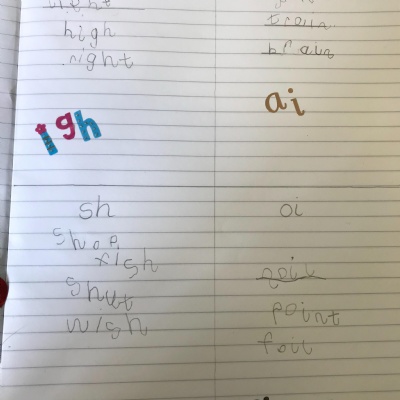 high
right
igh
train
brain
ai
sh
shop
shut
wish
oi
point
foil